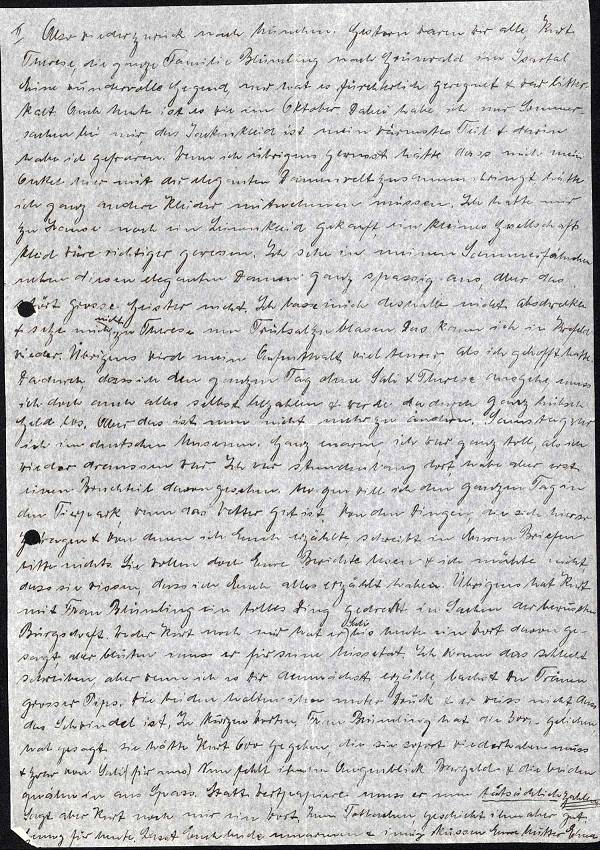 II Also wieder zurück nach München. Gestern waren wir alle, Kurt
Therese, die ganze Familie Blümling nach Grünwald im Isartal
Eine wundervolle Gegend, nur hat es fürchterlich geregnet & war bitter
kalt. Auch heute ist es wie im Oktober. Dabei habe ich nur Sommer-
sachen bei mir das Jackenkleid ist mein wärmstes Teil & darin
habe ich gefroren. Wenn ich übrigens gewusst hätte dass mich mein
Onkel hier mit der eleganten Damenwelt zusammenbringt hätte
ich ganz andere Kleider mitnehmen müssen. Ich hatte mir
zu Hause noch ein Leinenkleid gekauft, ein kleines Gesellschafts
kleid wäre richtiger gewesen. Ich sehe in meinen Sommerfähnchen
neben diesen eleganten Damen ganz spassig aus, aber das
stört grosse Geister nicht. Ich lasse mich deshalb nicht abschrecken
& setze mich nicht zu Therese um Trübsal zu blasen. Das kann ich in Krefeld
wieder. Übrigens wird mein Aufenthalt viel teurer als ich gehofft hatte
Dadurch dass ich den ganzen Tag ohne Sali & Therese ausgehe muss
ich doch auch alles selbst bezahlen & werde dadurch ganz hübsch
Geld los. Aber das ist nun nicht mehr zu ändern. Samstag war
ich im deutschen Museum. Ganz enorm ich war ganz toll, als ich
wieder draussen war. Ich war stundenlang dort habe aber erst
einen Bruchteil davon gesehen. Morgen will ich den ganzen Tag in
den Tierpark, wenn das Wetter gut ist. Von den Dingen die sich hier
& von denen ich Euch erzählte schreibt in Euren Briefen
bitte nichts. Sie wollen doch Eure Berichte lesen & ich möchte nicht
dass sie wissen, dass ich Euch alles erzählt habe. Übrigens hat Kurt
mit Frau Blümling ein tolles Ding gedreht in Sachen der bewussten
Bürgschaft. Weder Kurt noch mir hat er bis heute ein Wort davon ge-
sagt aber bluten muss er für seine Missetat. Ich kann das schlecht
schreiben, aber wenn ich es Dir demnächst erzähle lachst Du Tränen
grosser Pips. Die beiden halten ihn unter Druck & er weiss nicht dass
das Schwindel ist. In kurzen Worten, Frau Blümling hat die geliehen
hat gesagt sie hätte Kurt 600 gegeben, die sie sofort wiederhaben muss
& zwar von Sali (für uns) Nun fehlt ihm im Augenblick Bargeld & die beiden
quälen ihn aus Spass. Statt Wertpapiere muss er nun tatsächlich zahlen
sagt aber Kurt noch mir ein Wort. geschieht ihm aber gut
genug für heute. Lasst Euch beide umarmen & innig küssen Eure Mutter